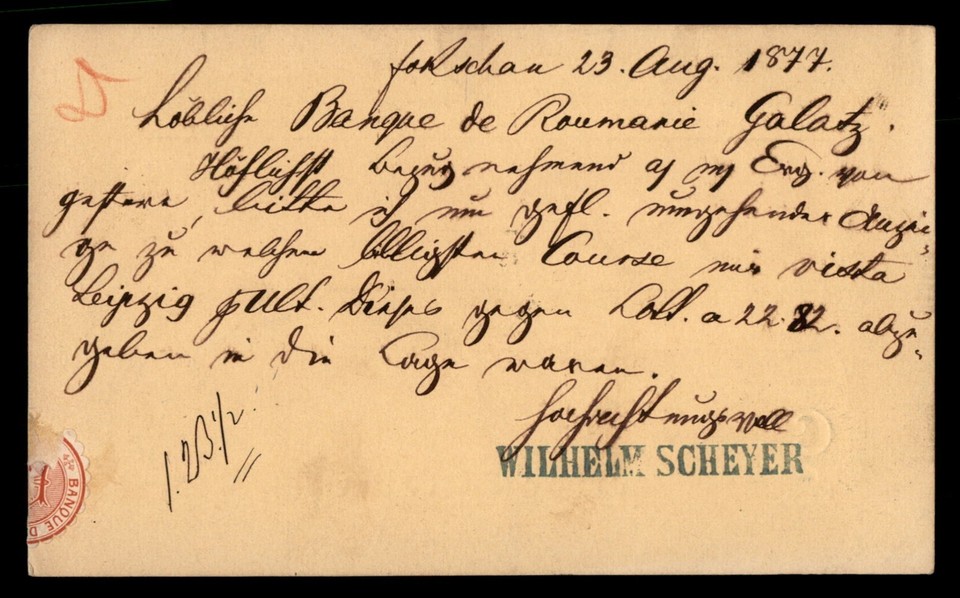 Fokschan 23. Aug. 1877.
Löbliche Banque de Roumanie Galatz.
Höflichst bezugnehmend a/ m/ Erg. von
gestern, bitte ich um gefl. umgehender Anzei-
ge zu welchem billigsten Course mir vista
Leipzig p Ult. Dieses gegen a 22.82. abzu-
geben in die Lage waren.
hochachtungsvoll
WILHELM SCHEYER
BANQUE D